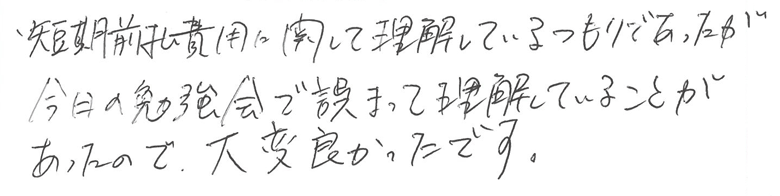 ・短期前払費用に関して理解しているつもりであったが
今日の勉強会で誤まって理解していることが
あったので、大変良かったです。